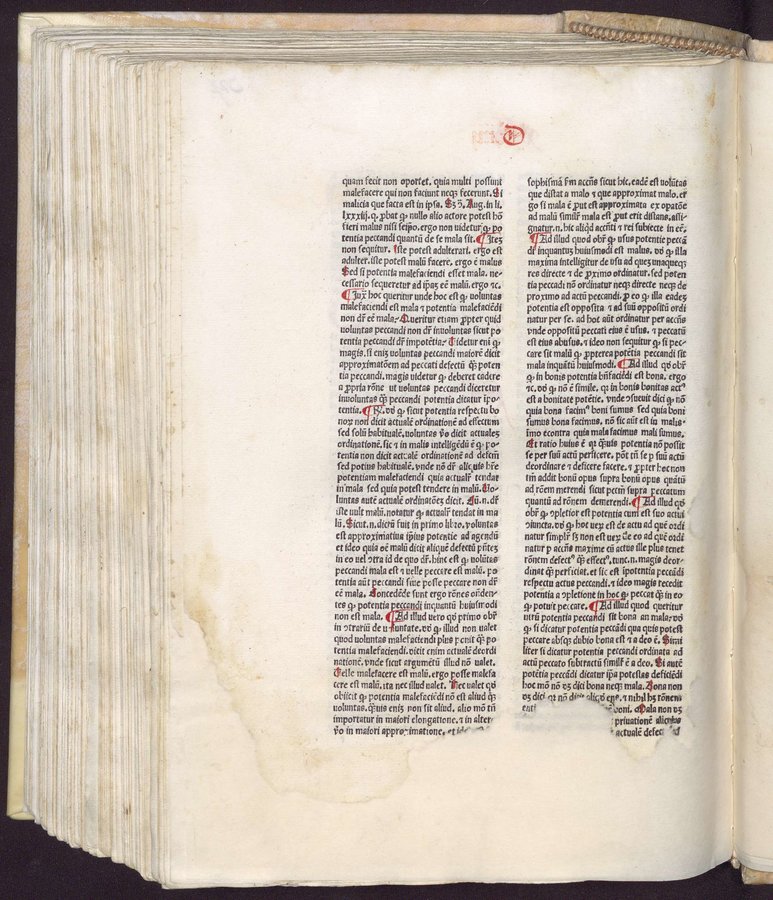 D
quam fecit non oportet. quia multi possunt
malefacere qui non faciunt neqꝫ fecerunt. Si
malicia que facta est in ipsa. Sꝫ ꝯ̃. Aug. in li.
lxxxiij. q. ꝓbat ꝙ nullo alio actore potest hõ
fieri malus nisi seip̃o. ergo non videtur ꝙ po
tentia peccandi quantũ de se mala sit. ¶ Itẽ
non sequitur. iste potest adulterari. ergo est
adulter. iste potest malũ facere. ergo ẽ malus
Sed si potentia malefaciendi esset mala. ne-
cessario sequeretur ad ip̃as eẽ malũ. ergo ⁊c.
¶ Juxͣ hoc queritur unde hoc est ꝙ voluntas
malefaciendi est mala ⁊ potentia malefaciẽdi
non dr̃ eẽ mala. Queritur etiam ꝓpter quid
voluntas peccandi non dr̃ involuntas sicut po
tentia peccandi dr̃ impotẽtia. Videtur eni ꝙ
magis. si eniꝫ voluntas peccandi maiorẽ dicit
approximatõem ad peccati defectũ ꝙ̃ poten
tia peccandi. magis videtur ꝙ deberet cadere
a ꝓpria rõne ut voluntas peccandi diceretur
involuntas ꝙ̃ peccandi potentia dicatur ipo-
tentia. ¶ R̃. dõ ꝙ sicut potentia respectu bo
noꝝ non dicit actualẽ ordinationẽ ad effectum
sed solũ habitualẽ. voluntas ṽo dicit actualeꝫ
ordinationẽ. sic ⁊ in malis intelligẽdũ ẽ ꝙ po-
tentia non dicit actualẽ ordinationẽ ad defectũ
sed potius habitualẽ. vnde nõ dr̃ aliquis hr̃e
potentiam malefaciendi quia actualr̃ tendat
in mala sed quia potest tendere in malũ. Vo-
luntas autẽ actualẽ ordinatõeꝫ dicit. Cũ. n. dr̃
iste vult malũ. notatur ꝙ actualr̃ tendat in ma
lũ. Sicut. n. dictũ fuit in primo libro. voluntas
est approximativa ip̃ius potentie ad agendũ
et ideo quia oẽ malũ dicit aliquẽ defectũ
in eo vel ⁊tra id de quo dr̃. hinc est ꝙ volũtas
peccandi mala est ⁊ velle peccare est malũ. po
tentia aũt peccandi sive posse peccare non dr̃
eẽ mala. Concedẽde sunt ergo rõnes ondẽn-
tes ꝙ potentia peccandi inquantũ huiusmodi
non est mala. ¶ Ad illud vero qđ primo obr̃
in ⁊trariũ de voluntate. dõ ꝙ illud non valet
quod voluntas malefaciendi plus ponit ꝙ̃ po
tentia malefaciendi. dicit enim actualẽ deordi
nationẽ. vnde sicut argumẽtũ illud nõ valet.
Velle malefacere est malũ. ergo posse malefa
cere est malũ. ita nec illud valet. Nec valet qđ
obiicit ꝙ potentia malefaciendi nõ est aliud ꝙ̃
voluntas. quis eniꝫ non sit aliud. alio mõ tñ
importatur in maiori elongatione. ⁊ in alter
ṽo in maiori approximatione. et
sophismã ẜm accñs sicut hic. eadẽ est volũtas
que distat a malo ⁊ que approximat malo. er
go si mala ẽ ꝓut est approximata ex opatõe
ad malũ similr̃ mala est ꝓut erit distans. assi-
gnatur. n. hic aliqđ accñti ⁊ rei subiecte in eẽ.
¶ Ad illud quod obr̃ ꝙ usus potentie peccã
di inquantuꝫ huiusmodi est malus. dõ ꝙ illa
maxima intelligitur de usu ad queꝫ unaqueqꝫ
res directe ⁊ de ꝓximo ordinatur. sed poten
tia peccãdi nõ ordinatur neqꝫ directe neqꝫ de
proximo ad actũ peccandi. ꝓ eo ꝙ illa eadeꝫ
potentia est opposita ⁊ ad suũ oppositũ ordi
natur per se. ad hoc aũt ordinatur per accñs
vnde oppositũ peccati eius ẽ usus. ⁊ peccatũ
est eius abusus. ⁊ ideo non sequitur ꝙ si pec-
care sit malũ ꝙ ꝓpterea potẽtia peccandi sit
mala inquãtũ huiusmodi. ¶ Ad illud qđ obr̃
ꝙ in bonis potentia bñfaciẽdi est bona. ergo
⁊c. dõ ꝙ nõ ẽ simile. qꝛ in bonis bonitas actꝰ
est a bonitate potẽtie. vnde ⁊suevit dici ꝙ nõ
quia bona facimꝰ boni sumus sed quia boni
sumus bona facimus. nõ sic aũt est in malis.
imo econtra quia mala facimus mali sumus.
Et ratio huius ẽ qꝛ ꝙ̃uis potentia nõ possit
se per suũ actũ perficere. põt tñ se p suũ actũ
deordinare ⁊ deficere facere. ⁊ ꝓpter hoc non
tm̃ addit bonũ opus supra bonũ opus quãtũ
ad rõem merendi sicut pctm̃ supra peccatum
quantũ ad rõnem demerendi. ¶ Ad illud qđ
obr̃ ꝙ ⁊pletior est potentia cum est suo actui
⁊iuncta. dõ ꝙ hoc veꝝ est de actu ad quẽ ordi
natur simplr̃ sꝫ non est veꝝ de eo ad quẽ ordi
natur p accñs maxime cũ actus ille plus tenet
rõnem defectꝰ ꝙ̃ effectꝰ. tunc. n. magis deor-
dinat ꝙ̃ perficiat. et sic est ipotentia peccãdi
respectu actus peccandi. ⁊ ideo magis recedit
potentia a ⁊pletione in hoc ꝙ peccat ꝙ̃ in eo
ꝙ potuit peccare. ¶ Ad illud quod queritur
utrũ potentia peccandi sit bona an mala. dõ
ꝙ si dicatur potentia peccãdi qua quis potest
peccare absqꝫ dubio bona est ⁊ a deo ẽ. Simi
liter si dicatur potentia peccandi ordinata ad
actũ peccato subtractũ similr̃ ẽ a deo. Si autẽ
potẽtia peccandi dicatur ip̃a potestas deficiẽdi
hoc mõ nõ dꝫ dici bona neqꝫ mala. Bona non
dꝫ dici qꝛ nõ dicit aliqđ ens. ⁊ nihil hꝫ rõnem
boni. Mala non dꝫ
privationẽ alicuius
actualẽ